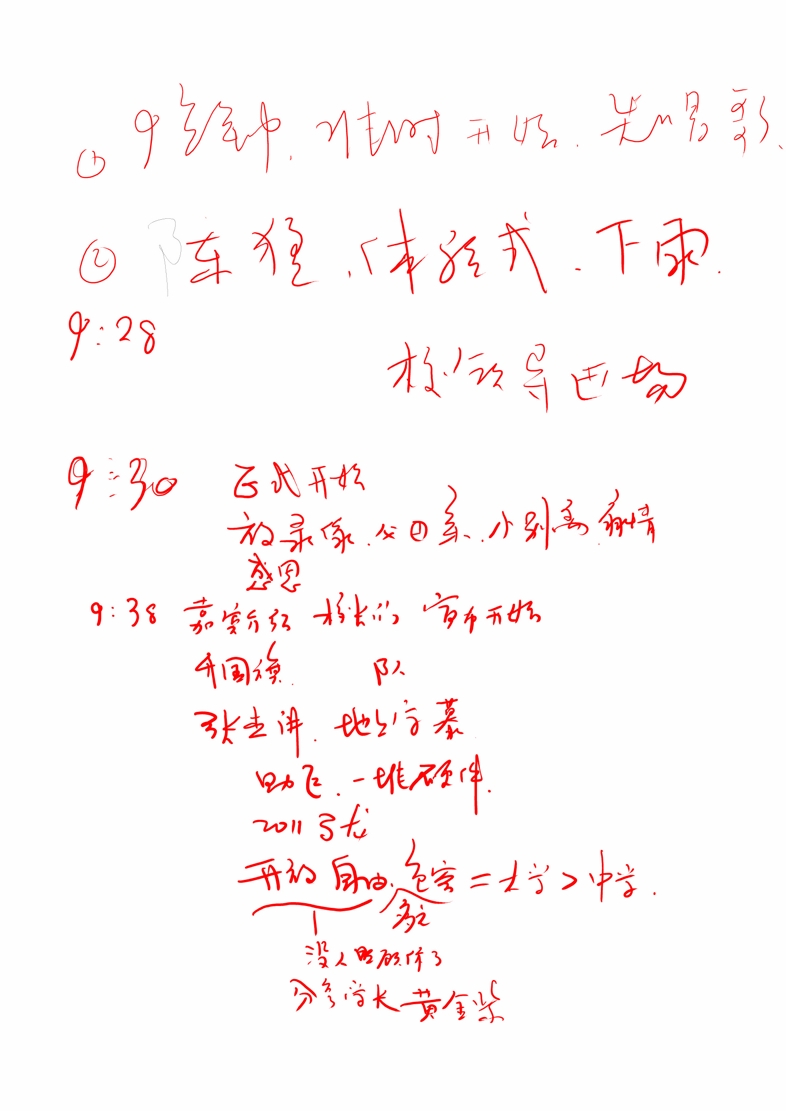 ① 9点钟.准时开始.先唱歌.
② 陈 .体验式.下雨.
9:28
校领导 场
9:30 正式开始
放录像.父母亲.小别离 亲情
感恩
9:38 嘉宾介绍 校长们 宣布开始
升国旗 队
张 讲. 地 字幕
助飞.一堆硬件.
2011
开放自由. = 大学>中学.
多
没人 硬件了
分享学长 黄金